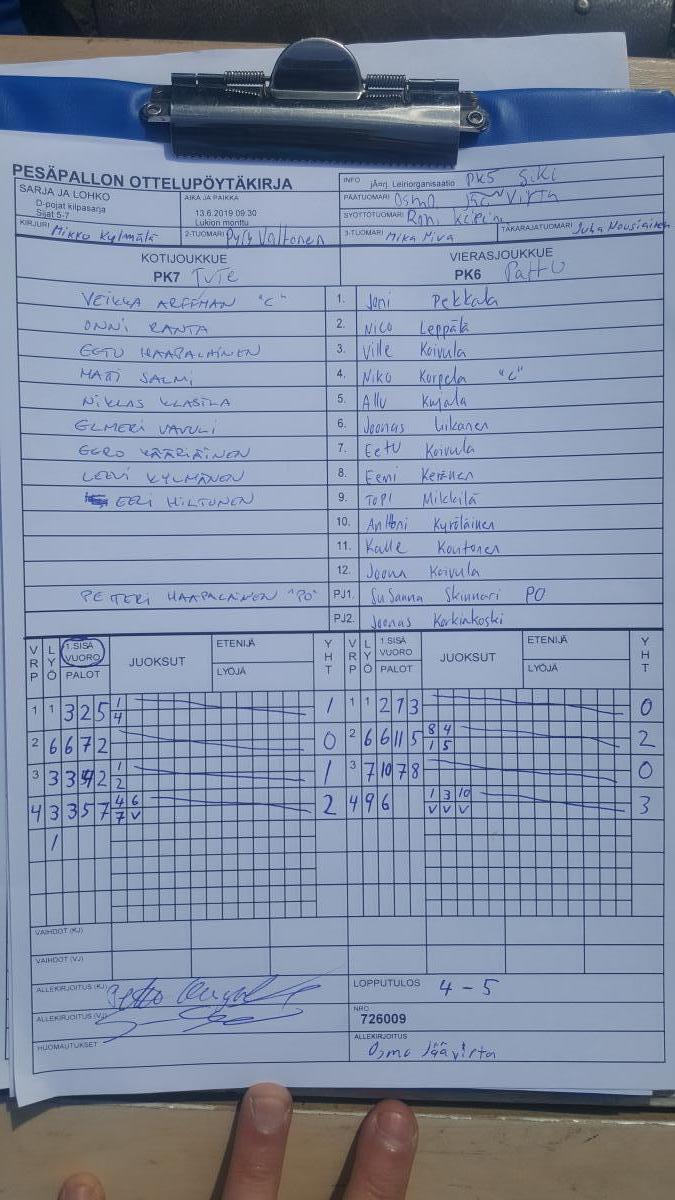 PESÄPALLON OTTELUPÖYTÄKIRJA
INFO jÄorj. Leiriorganisaatio PK5 SiKi
SARJA JA LOHKO AIKA JA PAIKKA PÄÄTUOMARI Osmo Jäävirta
D-pojat kilpasarja 13.6.2019 09.30 SYÖTTÖTUOMARI Roni
Sijat 5-7 Lukion monttu
KIRJURI Mikko Kylmälä 2-TUOMARI Pyry Valtonen 3-TUOMARI Mika Miva TAKARAJATUOMARI Juha Nousiainen
KOTIJOUKKUE VIERASJOUKKUE
PK7 TuTe PK6 PattU
VEIKKA ARFFMAN "C" 1. Joni Pekkala
ONNI RANTA 2. Nico Leppälä
EETU HAAPALAINEN 3. Ville Koivula
MATTI SALMI 4. Niko Korpela "C"
NIKLAS KLASILA 5. Allu Kujala
ELMERI VAVULI 6. Joonas Liikanen
EERO KÄÄRIÄINEN 7. Eetu Koivula
LEEVI KYLMÄNEN 8. Eemi Keränen
EERI HILTUNEN 9. TOPI Mikkilä
10. Anttoni Kyröläinen
11. Kalle Kontonen
12. Joona Koivula
PETTERI HAAPALAINEN "PO" PJ1. Susanna Skinnari PO
PJ2. Joonas Korkiakoski
VRP LYÖ 1.SISÄ VUORO PALOT JUOKSUT ETENIJÄ LYÖJÄ YHT VRP LYÖ 1.SISÄ VUORO PALOT JUOKSUT ETENIJÄ LYÖJÄ YHT
1 1 3 2 5 1 4 1 1 1 2 1 3 0
2 6 6 7 2 0 2 6 6 11 5 8 4 1 5 2
3 3 3 9 2 1 2 1 3 7 10 7 8 0
4 3 3 5 7 4 6 7 V 2 4 9 6 1 3 10 V V V 3
1
VAIHDOT (KJ)
VAIHDOT (VJ)
ALLEKIRJOITUS (KJ) LOPPUTULOS 4 - 5
ALLEKIRJOITUS (VJ) NRO
726009
HUOMAUTUKSET ALLEKIRJOITUS
Osmo Jäävirta